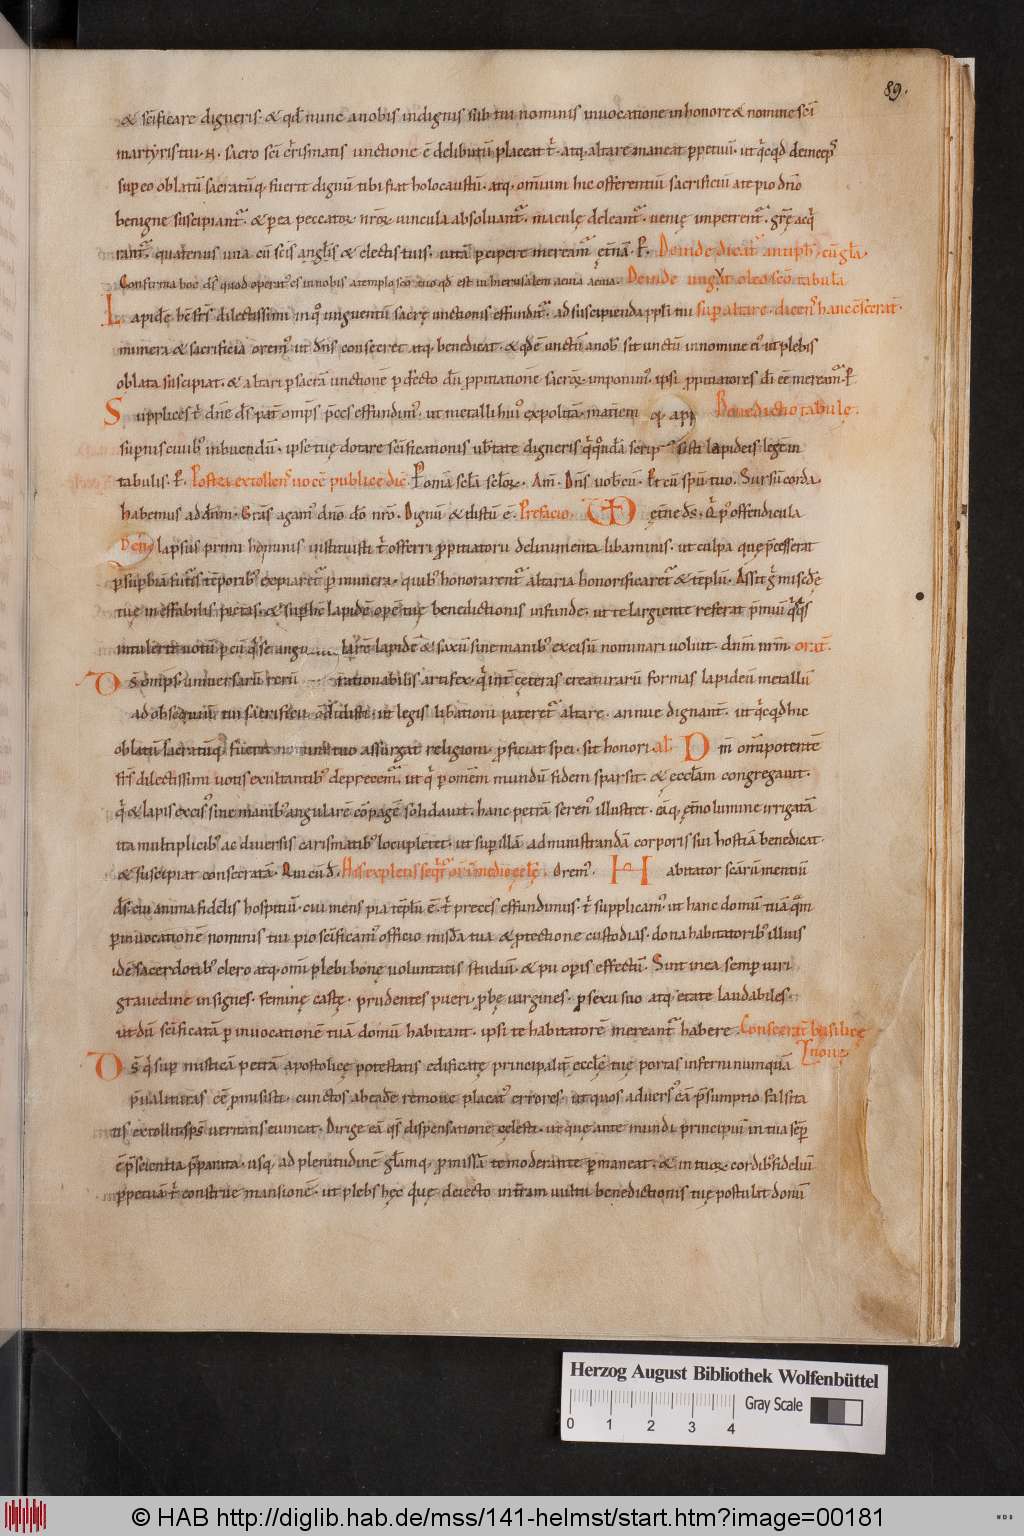 89.
& scīficare digneris. & qđ nunc a nobis indignis sub tui nominis invocatione in honore & nomine scī
martyris tui .N. sacro scī crismatis unctione ē delibutū placeat t̄. atq. altare maneat ppetuū. ut qcqđ deinceps
sup eo oblatū sacratūq. fuerit dignū tibi fiat holocaustū. atq. omnium hic offerentiū sacrificiū a te pio dn̄o
benigne suscipiant̄. & p ea peccatoꝝ nr̄oꝝ vincula absoluant̄. maculę deleant̄. venię impetrent̄. gr̄ę acq
rant̄. quatenus una cū scīs angl̄is & electis tuis. vitā pcipere meream̄ ęt̄nā. P. Deinde dicat antiph. cū gl̄a.
Confirma hoc ds̄ quod operat' es in nobis a templo scō tuo qđ est in hierusalem aevia aevia. Deinde ungat oleo scō tabulā
Lapidē hc̄ frs̄ dilectissimi in q° unguentū sacrę unctionis effundit̄. ad suscipienda ppl̄i sui sup altare. dicens hanc cōsecrat̄.
munera & sacrificia orem' ut dn̄s consecret atq. benedicat. & qđē unctū a nob' sit unctū in nomine ei' ut plebis
oblata suscipiat. & altari p sacrā unctionē pfecto dū ppitiationē sacroꝝ imponim'. ipsi ppitiatores dī ēē meream̄. P
Supplices t̄ dn̄e ds̄ pat̄ omp̄s p̄ces effundim'. ut metalli hui' expolitā materiem Benedictio tabulę.
supnis cuib' inbuendū. ipse tuę dotare scīficationis ub̄tate digneris lapideis legem
tabulis. P. Postea extollens voce publice dic̄ P om̄ia scl̄a scl̄oꝝ. Am̄. Dn̄s vob̄cū. Et cū spū tuo. Sursū corda.
habemus ad dn̄m. Gr̄as agam' dn̄o dō nr̄o. Dignū & iustū ē. Prefacio. VD ęt̄ne ds̄. Q p' offendicula
lapsus primi hominis instituisti t̄ offerri ppitiatorii delinimenta libaminis. ut culpa quę p̄cesserat
p supbiā fut̄is tēporib' expiaret̄ p munera. quib' honorarent̄ altaria honorificaret̄ & tēplū. Assit misc̄dę
tuę ineffabilis pietas. & supbc̄ lapidē opē tuę benedictionis infunde. ut te largiente referat p̄miū
intulerit votū lapidē & saxū sine manib' excisū nominari voluit. dn̄m nr̄m. orat̄.
Ds̄ omp̄s. universarū rerū rationabilis artifex. q int̄ cęteras creaturarū formas lapideū metallū
ad obsequiū tui sacrificii cōdidisti. ut legis libatiōni pateret̄ altare. annue dignant̄. ut qcqđ hic
oblatū sacratūq. fuerit nomini tuo assurgat religioni pficiat spei. sit honori. al̄. Dn̄m omīpotentē
frs̄ dilectissimi votis exultantib' deprecem̄. ut q p omnem mundū fidem sparsit. & eccl̄am congregavit.
q & lapis excis' sine manib' angularē cōpagē solidavit. hanc petrā seren' illustret. eāq. ęt̄no lumine irrigatā
ita multiplicib' ac diversis carismatib' locupletet. ut sup illā administrandā corporis sui hostiā benedicat.
& suscipiat consecratā. Qui cū đ. His expletis in medio ęcclę. Orem'. Habitator scārū mentiū
ds̄. cui anima fidelis hospitiū. cui mens pia tēplū ē. t̄ preces effundimus. t̄ supplicam' ut hanc domū tuā
p invocationē nominis tui pio scīficam' officio misd̄a tua & ptectione custodias. dona habitatorib' illius
idē sacerdotib' clero atq. omī plebi bonę voluntatis studiū. & pii opis effectū. Sint in ea semp viri
gravedine insignes. feminę castę. prudentes pueri. pbę virgines. p sexu suo atq. ętate laudabiles.
ut dū scīficatā p invocationē tuā domū habitant. ipsi te habitatorē mereant̄ habere. Consecrat̄ basilicę
novę
Ds̄ q sup misticā petrā apostolicę potestatis edificatę principalit̄ eccl̄ę tuę portas inferni nunquā
p̄valituras ēē pmisisti. cunctos ab eadē remove placat' errores. ut quos advers' eā p̄sumptio falsita
tis extollit spc̄ veritatis evincat. Dirige eā qs̄ dispensatione cęlesti. ut quę ante mundi principiū in tua sēp
ē p̄scientia p̄parata. usq. ad plenitudinē gl̄amq. pmissā te moderante pmaneat. & in tuoꝝ cordib' fideliū
ppetuā t̄ construe mansionē. ut plebs hęc quę deiecto int̄ram vultu benedictionis tuę postulat donū
Herzog August Bibliothek Wolfenbüttel
Gray Scale
0 1 2 3 4
© HAB http://diglib.hab.de/mss/141-helmst/start.htm?image=00181